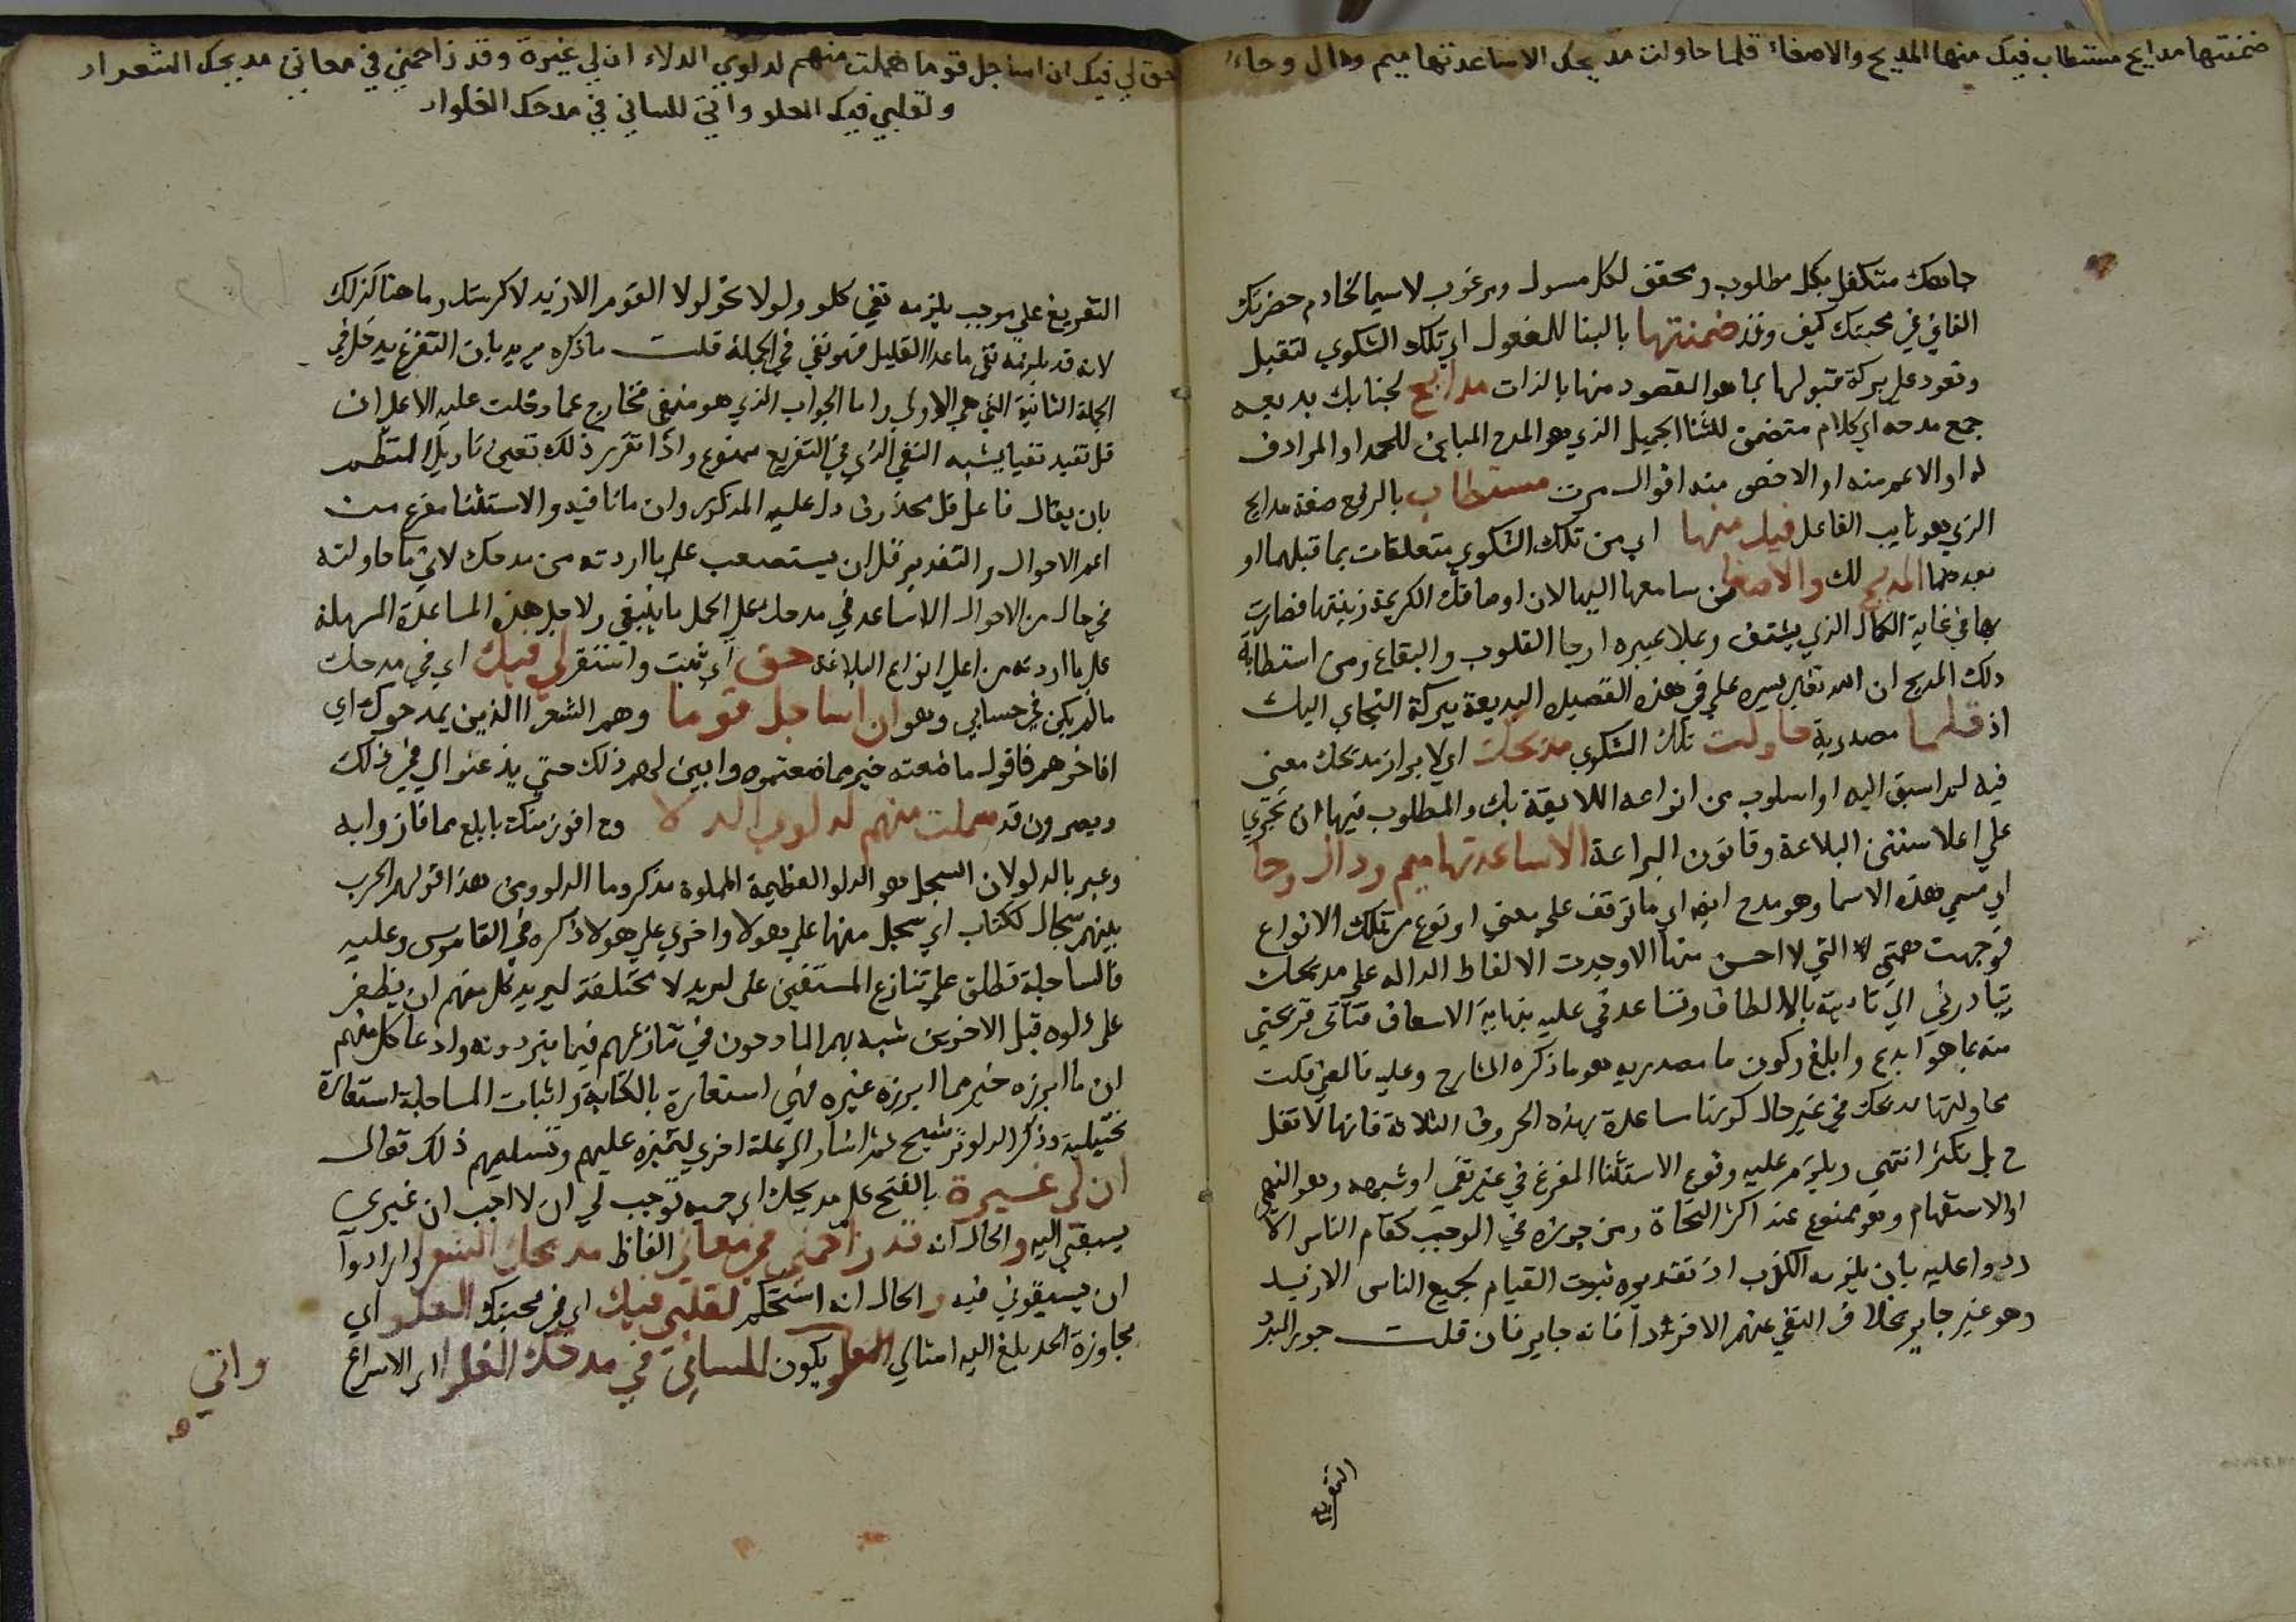 ضمنتها مدايح مستطاب فيك منها المديح والاصغاء قلما حاولت مديحك الا ساعدتها ميم ودال وحاء
جاهك متكفل بكل مطلوب ومحقق لكل مسول ومرغوب لاسيما لخادم حضرتك
الفاني في محبتك كيف وقد ضمنتها بالبنا للمفعول اي تلك الشكوي لتقبل
وتعود علي بركة قبولها بما هو المقصود منها بالذات مدايح لجنابك بديعه
جمع مدحه اي كلام متضمن للثنا الجميل الذي هو المدح المباين للحمد او المرادف
له او الاعم منه او الاخص منه اقوال مرت مستطاب بالرفع صفة مدايح
الذي هو نايب الفاعل فيك منها اي من تلك الشكوي متعلقات بما قبلهما او
بعدهما المديح لك والاصغا من سامعها اليها لان اوصافك الكريمة زينتها فصارت
بها في غاية الكمال الذي يشنف ويملا عبيره ارجا القلوب والبقاع ومن استطابة
ذلك المديح ان الله تعالي يسره علي في هذه القصيده البديعة ببركة التجاي اليك
اذ قلما مصدرية حاولت تلك الشكوي مديحك اي لابراز مدحك معني
فيه لم اسبق اليه او اسلوب من انواعه اللايقة بك والمطلوب فيها ان تجري
علي اعلا سنن البلاغة وقانون البراعة الا ساعدتها ميم ودال وحا
اي مسمي هذه الاسما وهو مدح ايضا اي ما توقف علي معني او نوع من تلك الانواع
فوجهت همتي التي لا احسن منها الا وجدت الالفاظ الداله علي مديحك
تبادرني الي تاديته بالالطاف وتساعدني عليه بنهاية الاسعاف فتاتي قريحتي
منه بما هو ابدع وابلغ وكون ما مصدريه هو ما ذكره الشارح وعليه فالمعني قلت
محاولتها مدحك في غير حال كونها ساعدة بهذه الحروف الثلاثة فانها لا تقل
ح بل تكثر انتهي ويلزم عليه وقوع الاستثنا المفرغ في غير نفي او شبهه وهو النهي
او الاستفهام وهو ممنوع عند اكثر النحاة ومن جوزه في الموجب كقام الناس الا
ردوا عليه بان يلزمه الكذب اذ تقديره ثبوت القيام لجميع الناس الا زيد
وهو غير جايز بخلاف النفي عنهم الا فردا فانه جايز فان قلت جوز المبرد
التفريغ
حق لي فيك ان اساجل قوما سلمت منهم لدلوي الدلاء ان لي غيرة وقد زاحمتني في معاني مديحك الشعراء
ولقلبي فيك الغلو واني للساني في مدحك الغلواء
التفريغ علي موجب يلزمه نفي كلو ولولا نحو لولا القوم الا زيد لاكرمتك وما هنا كذلك
لانه قد يلزمه نفي ما عدا القليل فهو نفي في الجملة قلت ما ذكره يريد بان التفريغ يدخل في
الجملة الثانية التي هي الاولي واما الجواب الذي هو منفي فخارج عما دخلت عليه الا علي ان
قل تفيد نفيا يشبه النفي الذي في التفريع ممنوع واذا تقرر ذلك تعين تاويل النظم
بان يقال فاعل قل محذوف دل عليه المذكور وان ما نافيه والاستثنا مفرغ من
اعم الاحوال والتقدير قل ان يستصعب علي ما اردته من مدحك لاني ما حاولته
في حال من الاحوال الا ساعدني مدحك علي اكمل ما ينبغي ولاجل هذه المساعدة المسهلة
علي ما اردته من اعلي انواع البلاغه حق اي ثبت واستقر لي فيك اي في مدحك
مالم يكن في حسابي وهو ان اساجل قوما وهم الشعرا الذين يمدحوك اي
افاخرهم فاقول ما صنعته خير مما صنعتموه وابين لهم ذلك حتي يذعنوا لي في ذلك
ويصرون قد سلمت منهم لدلوي الدلا وح افوز منك بابلغ مما فازوا به
وعبر بالدلو لان السجل هو الدلو العظيمة المملوة مذكر وما الدلو ومن هذا قولهم الحرب
بينهم سجال ككتاب اي سجل منها علي هولا واخري علي هولا ذكره في القاموس وعليه
فالمساجلة تطلق علي تنازع المستقين علي بير بدلا مختلفة ليريد كل منهم ان يظفر
علي دلوه قبل الاخرين شبه بهم المادحون في تنازعهم فيما يتردونه وادعا كل منهم
ان ما ابرزه خير مما ابرزه غيره فهي استعارة بالكناية واثبات المساجلة استعارة
تخييلية وذكر الدلو ترشيح ثم اشار الي علة اخري لتميزه عليهم وتسليمهم ذلك فقال
ان لي غيرة بالفتح علي مديحك اي حميه توجب لي ان لا احب ان غيري
يسبقني اليه والحال انه قد زاحمتني في معاني الفاظ مديحك الشعرا وارادوا
ان يسبقوني فيه والحال انه استحكم لقلبي فيك اي في محبتك الغلو اي
مجاوزة الحد بلغ اليه امثالي الغلو يكون للساني في مدحك الغلوا اي الاسراع
واني